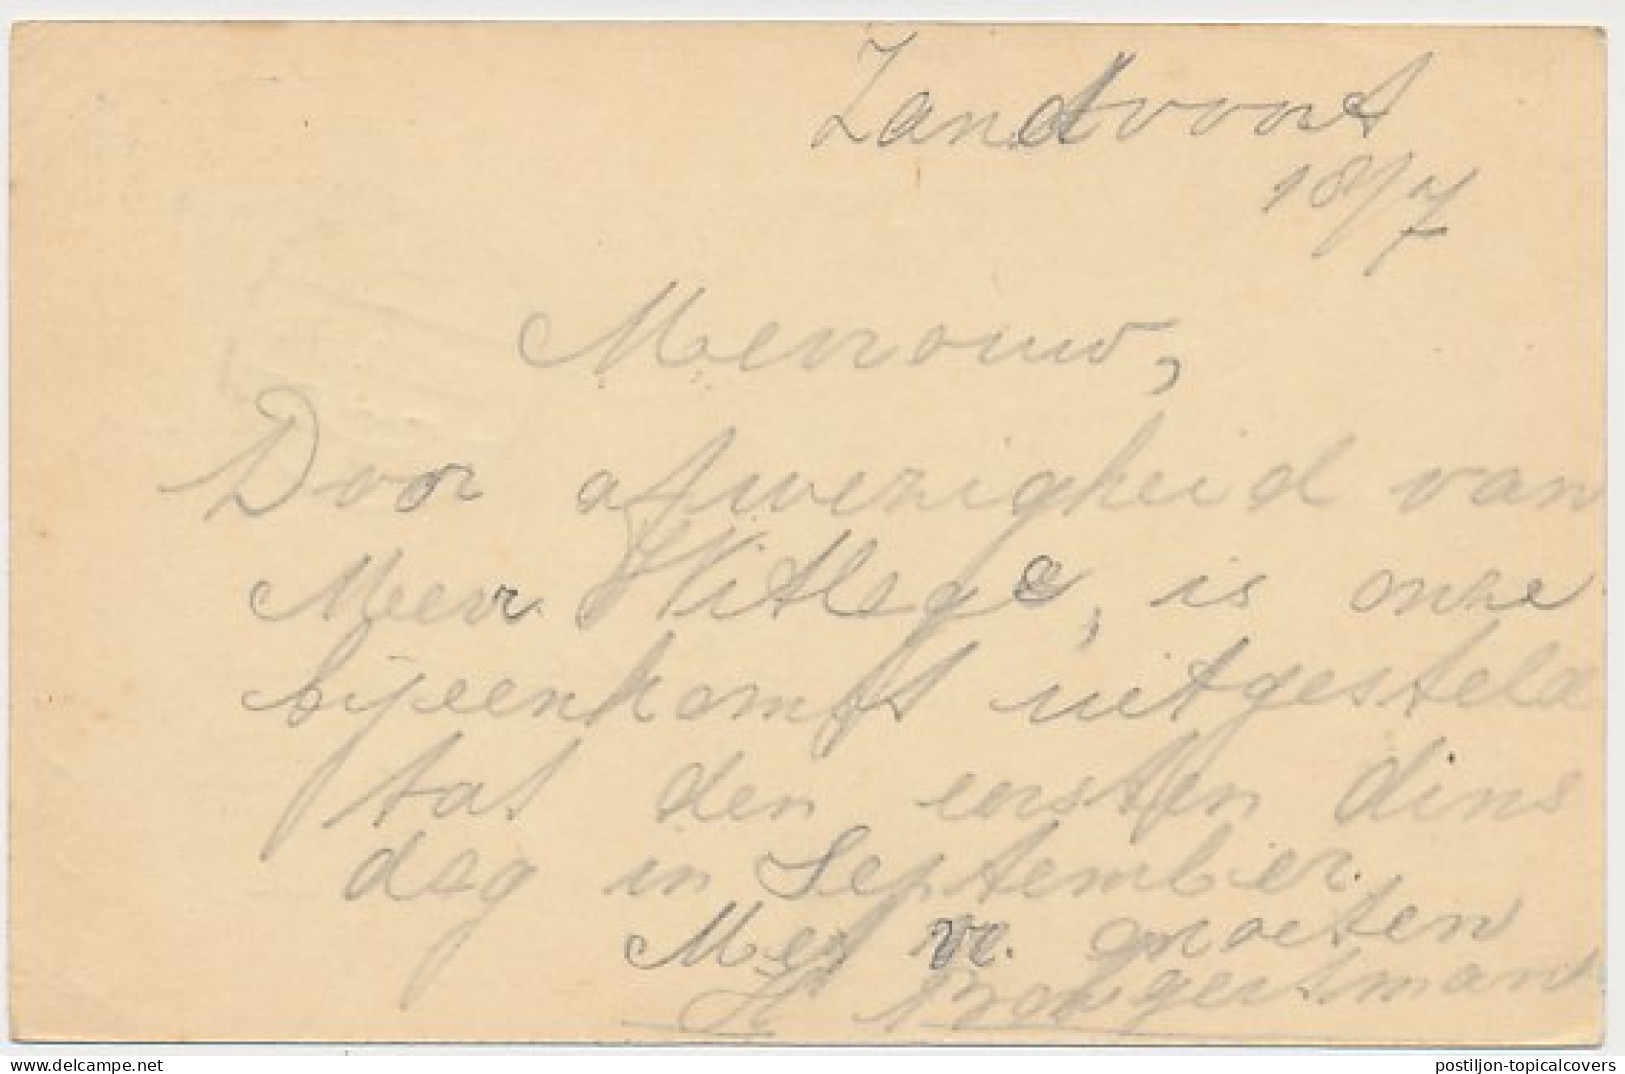 Zandvoort
18/7
Mevrouw,
Door afwezigheid van
Meevr. , is onze
bijeenkomst uitgesteld
tot den eersten dins
dag in September.
Met vr. groeten
H
postiljon-topicalcovers